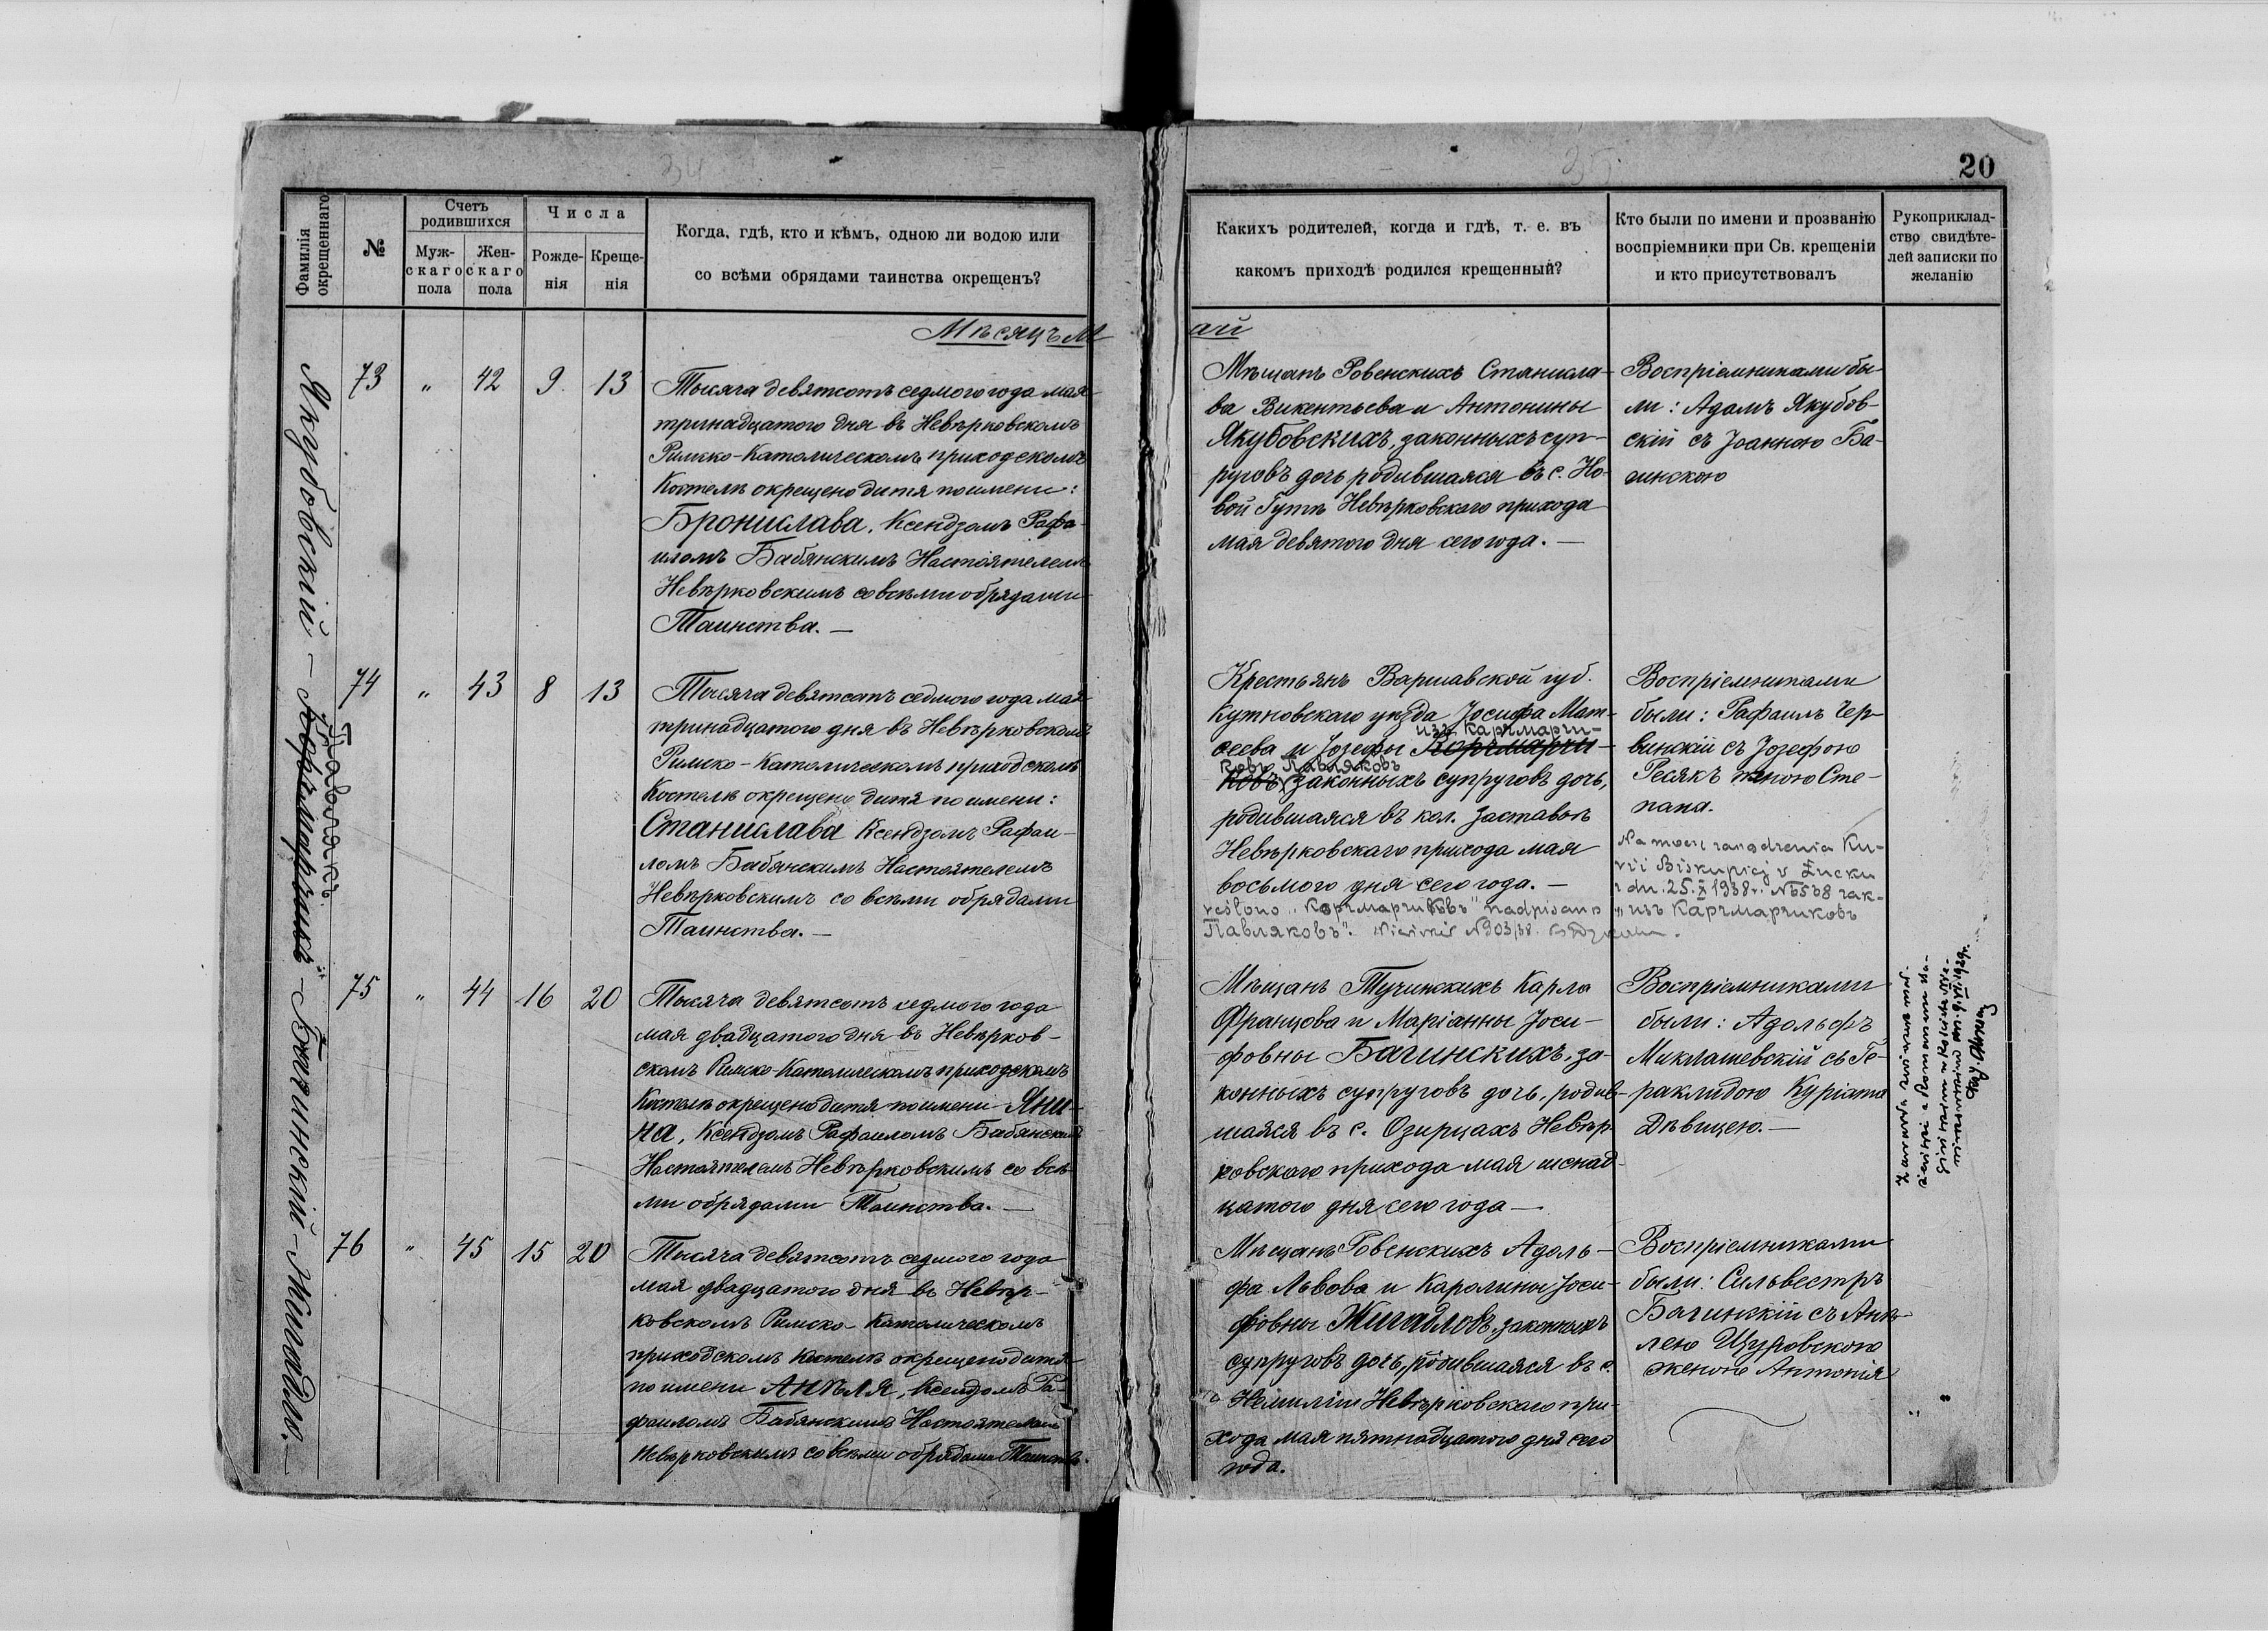 20
Фамилія
окрещеннаго
№
Счетъ
родившихся
Муж-
скаго
пола
Жен-
скаго
пола
Числа
Рожде-
нія
Креще-
нія
Когда, гдѣ, кто и кѣмъ, одною ли водою или
со всѣми обрядами таинства окрещенъ?
Какихъ родителей, когда и гдѣ, т. е. въ
какомъ приходѣ родился крещенный?
Кто были по имени и прозванію
воспріемники при Св. крещеніи
и кто присутствовалъ
Рукоприклад-
ство свидѣте-
лей записки по
желанію
Мѣсяцъ М
ай
Якубовскій —
73 " 42 9 13
Тысяча девятсотъ седмого года мая
тринадцатого дня въ Невѣрковскомъ
Римско-Католическомъ приходскомъ
Костелѣ окрещено дитя по имени:
Бронислава, Ксендзомъ Рафа-
иломъ Бабянскимъ Настоятелемъ
Невѣрковскимъ со всѣми обрядами
Таинства. —
Мѣщанъ Ровенскихъ Станисла-
ва Викентьева и Антонины
Якубовскихъ, законныхъ суп-
руговъ дочь родившаяся въ с. Но-
вой Гутѣ Невѣрковскаго прихода
мая девятого дня сего года. —
Воспріемниками бы-
ли: Адамъ Якубов-
скій съ Іоанною Ба-
чинскою
Павлякъ
74 " 43 8 13
Тысяча девятсотъ седмого года мая
тринадцатого дня въ Невѣрковскомъ
Римско-Католическомъ приходскомъ
Костелѣ окрещено дитя по имени:
Станислава Ксендзомъ Рафаи-
ломъ Бабянскимъ Настоятелемъ
Невѣрковскимъ со всѣми обрядами
Таинства. —
Крестьянъ Варшавской губ.
Кутновскаго уѣзда Іосифа Мат-
изъ Карчмарчи-
сеева и Іозефы Корчмарчи-
ковъ Павляковъ
ковъ законныхъ супруговъ дочь,
родившаяся въ кол. Заставье
Невѣрковскаго прихода мая
восьмого дня сего года. —
Воспріемниками
были: Рафаилъ Чер-
винскій съ Іозефою
Ресякъ женою Сте-
пана.
Na mocy zarządzenia Ku-
rii Biskupiej w Łucku
z dn. 25.X 1938 r. № 5538 zak-
reślono „Корчмарчиковъ" nadpisano „изъ Карчмарчиковъ
Павляковъ".
Бачинскій —
75 " 44 16 20
Тысяча девятсотъ седмого года
мая двадцатого дня въ Невѣрков-
скомъ Римско-Католическомъ приходскомъ
Костелѣ окрещено дитя по имени Яни-
на, Ксендзомъ Рафаиломъ Бабянскимъ
Настоятелемъ Невѣрковскимъ со всѣ-
ми обрядами Таинства. —
Мѣщанъ Тучинскихъ Карла
Францова и Маріанны Іоси-
фовны Бачинскихъ, за-
конныхъ супруговъ дочь, родив-
шаяся въ с. Озирцахъ Невѣр-
ковскаго прихода мая шснад-
цатого дня сего года —
Воспріемниками
были: Адольфъ
Миклашевскій съ Ге-
раклидою Куріата
Дѣвицею. —
Жигадло. —
76 " 45 15 20
Тысяча девятсотъ седмого года
мая двадцатого дня въ Невѣр-
ковскомъ Римско-Католическомъ
приходскомъ Костелѣ окрещено дитя
по имени Анѣля, Ксендзомъ Ра-
фаиломъ Бабянскимъ Настоятелемъ
Невѣрковскимъ со всѣми обрядами
Мѣщанъ Ровенскихъ Адоль-
фа Львова и Каролины Іоси-
фовны Жигадловъ, законныхъ
супруговъ дочь, родившаяся въ с.
Немиліи Невѣрковскаго при-
хода мая пятнадцатого дня сего
года.
Воспріемниками
были: Сильвестръ
Бачинскій съ Анѣ-
лею Щуровскою
женою Антонія